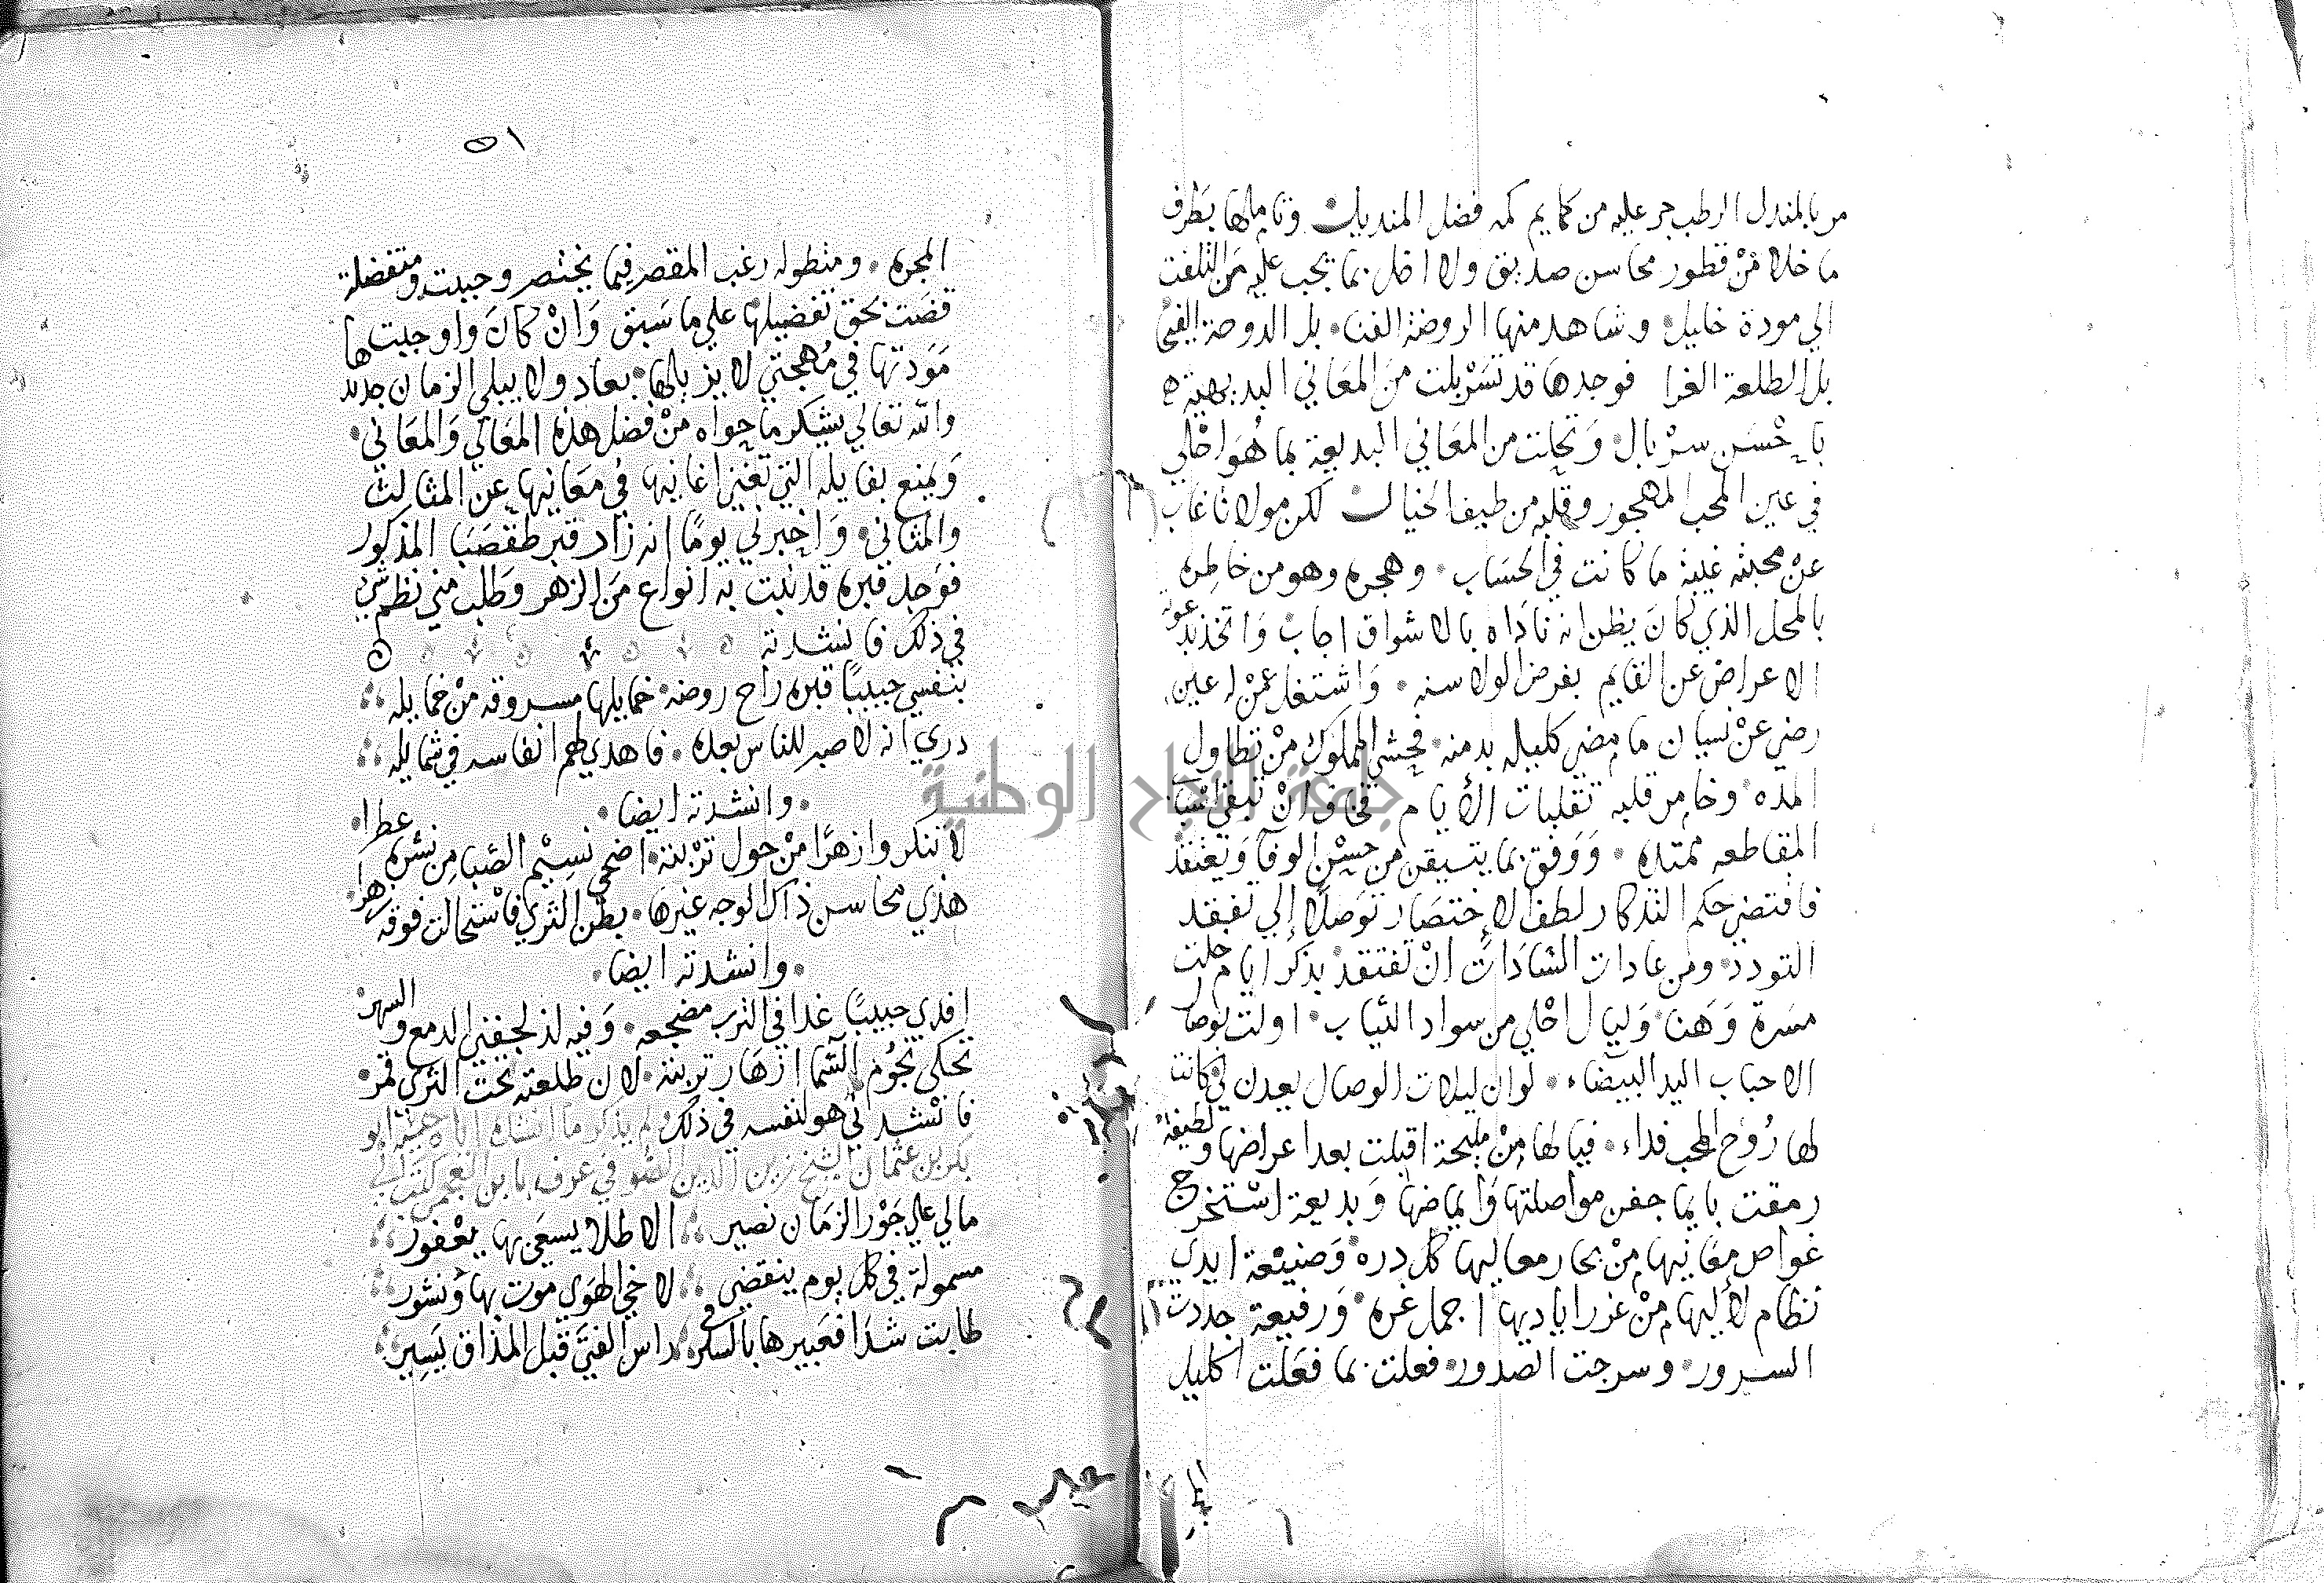 مر بالمندل الرطب جر عليه من كمايم كمه فضل المنديل وتاملها بطرف
ما خلا من قطور محاسن صديق ولا اخل بما يجب عليه من التلفت
الي مودة خليل وشاهد منها الروضة الغنا بل الدوحة
بل الطلعة الغرا فوجدها قد تسربلت من المعاني البديهية
باحسن سربال وتحلت من المعاني البديعة بما هو احلي
في عين المحب المهجور وقلبه من طيف الخيال لكن مولانا غاب
عن محبته غيبة ما كانت في الحساب وهجره وهو من خاطره
بالمحل الذي كان يظن انه ناداه بالاشواق اجاب واتخذ بدعة
الاعراض عن القايم بفرض الولا سنه واشتغل عمن له عين
رضي عن نسيان ما مضي كليله بدمنه فخشي المملوك من تطاول
المده وخامر قلبه تقلبات الأيام فخاف ان تبقي
المقاطعه ممتده ووفق بما يتيقن من حسن الوفا ويعتقد
فاقتضي حكم التذكار لطف الاختصار توصلا إلي تفقد
التودد ومن عادات السادات ان تفتقد بذكر ايام حلت
مسرة وهنا وليال احلي من سواد الشباب اولت بوصال
الاحباب اليد البيضاء لو ان ليلات الوصال يعدن لي كانت
لها روح المحب فداء فيا لها من مليحة اقبلت بعد اعراضها ولطيفة
رمقت بايما جفن مواصلتها وايماضها وبديعة استخرج
غواص معانيها من بحار معاليها كل دره وصنيعة ايدي
نظام لأليها من غرر اياديها اجمل غره ورفيعة جددت
السرور وسرجت الصدور فعلت بما فعلت اكليل
المجره
٥١
المجره ومتطوله رغب المقصر فيما يختصر وجبيت ومتفضلة
قضت بحق تفضيلها علي ما سبق وان كان واوجبت لها
مودتها في مهجتي لا يزيلها بعاد ولا يبلي الزمان جديد
والله تعالي يشكر ما حواه من فضل هذه المعالي والمعاني
ويمنع بقايله التي تغني اغانيها في معانيها عن المثالث
والمثاني واخبرني يوما انه زار قبر طقصبا المذكور
فوجد قبره قد نبت به انواع من الزهر وطلب مني نظم شي
في ذلك فانشدته
بنفسي حبيبا قبره راح روضه خمايلها مسروقه من خمايله
دري انه لا صبر للناس بعده فاهدي لهم انفاسه في شمايله
وانشدته ايضا
لا تنكروا زهرا من حول تربته اضحي نسيم الصبا من نشره عطرا
هذي محاسن ذاك الوجه غيرها بطن الثري فاستحالت فوقه زهرا
وانشدته ايضا
افدي حبيبا غدا في الترب مضجعه وفيه لذ لجفني الدمع والسهر
تحكي نجوم السما ازهار تربته لان طلعته تحت الثري قمر
فانشدني هو لنفسه في ذلك ولم يذكر ما انشدك اياه ابو
بكر بن عثمان الشيخ زين الدين الصوفي عرف بابن العجمي كتب لي
مالي علي جور الزمان نصير الا طلا يسعي بها يعفور
مسمولة في كل يوم ينقضي لاخي الهوي موت بها ونشور
طابت شذا فعبيرها بالسكر في راس الفتي قبل المذاق يسير